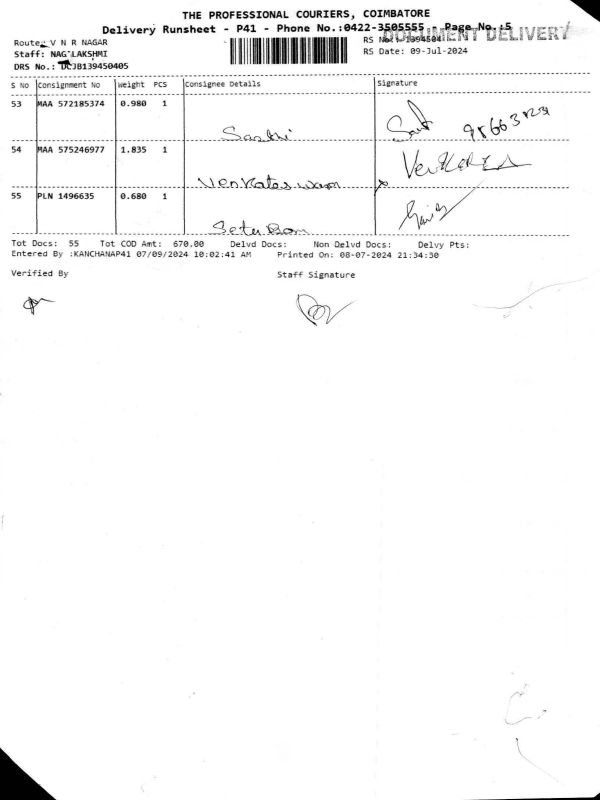 THE PROFESSIONAL COURIERS, COIMBATORE
Delivery Runsheet - P41 - Phone No.:0422-3505555 - Page No.:5
DOCUMENT DELIVERY
Route: V N R NAGAR
RS No.: 1394504
Staff: NAG LAKSHMI
RS Date: 09-Jul-2024
DRS No.: DCJB139450405
S No Consignment No Weight PCS Consignee Details Signature
53 MAA 572185374 0.980 1
Sasthi
54 MAA 575246977 1.835 1
Venkates waran
55 PLN 1496635 0.680 1
Setu Ram
Tot Docs: 55 Tot COD Amt: 670.00 Delvd Docs: Non Delvd Docs: Delvy Pts:
Entered By :KANCHANAP41 07/09/2024 10:02:41 AM Printed On: 08-07-2024 21:34:30
Verified By Staff Signature